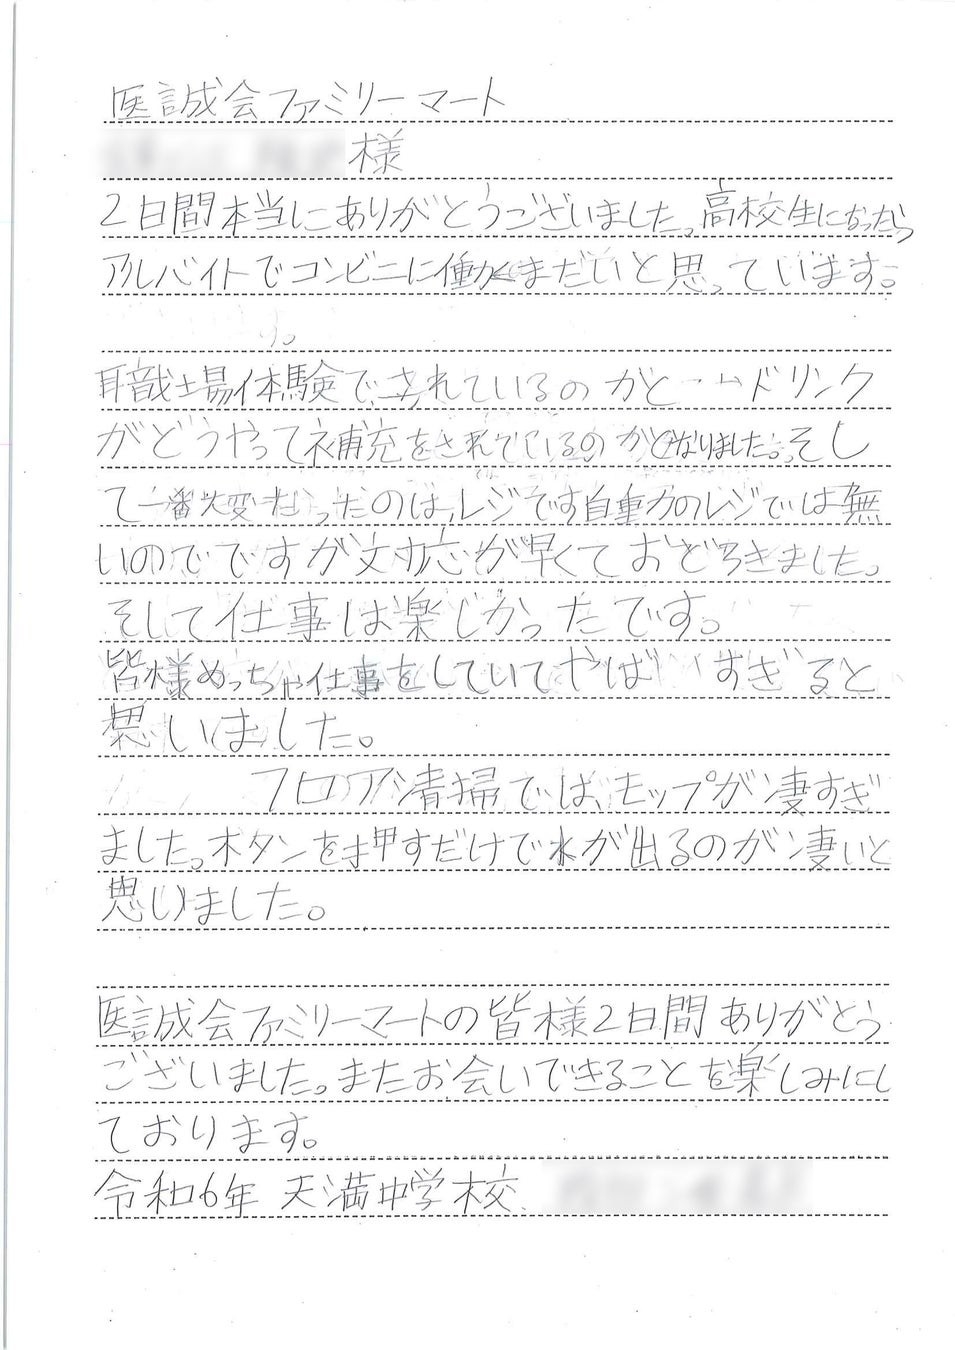 医誠会ファミリーマート
様
2日間本当にありがとうございました。高校生になったら
アルバイトでコンビニに働くまだいいと思っています。
す。
職場体験で、されているのかと ドリンク
がどうやって補充をされでいるのかとなりました。そし
て一番大変だったのは、レジです自重力のレジでは無
いのでですが対応が早くておどろきました。
そして仕事は楽しかったです。
皆様めっちゃ仕事をしていてやば すぎると
思いました。
フロア清掃では、モップが凄すぎ
ました。ボタンを押すだけで水が出るのが凄いと
思いました。
医誠会ファミリーマートの皆様2日間ありがとう
ございました。またお会いできることを楽しみにし
ております。
令和6年 天満中学校